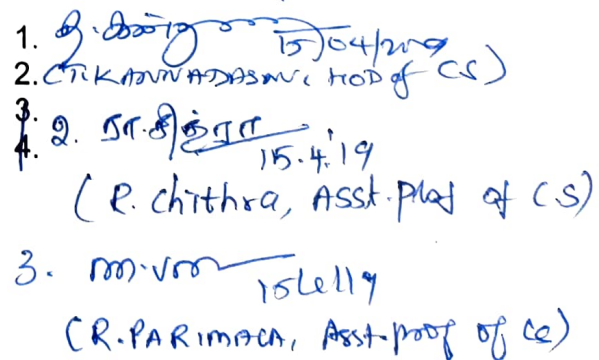 1.
15/04/2019
2. (T. KANNADASAN, HOD of CS)
3.
4. 2. ரா.சித்ரா
15.4.'19
(R. Chithra, Asst. Prof of CS)
3.
(R. PARIMALA, Asst. prof of CS)